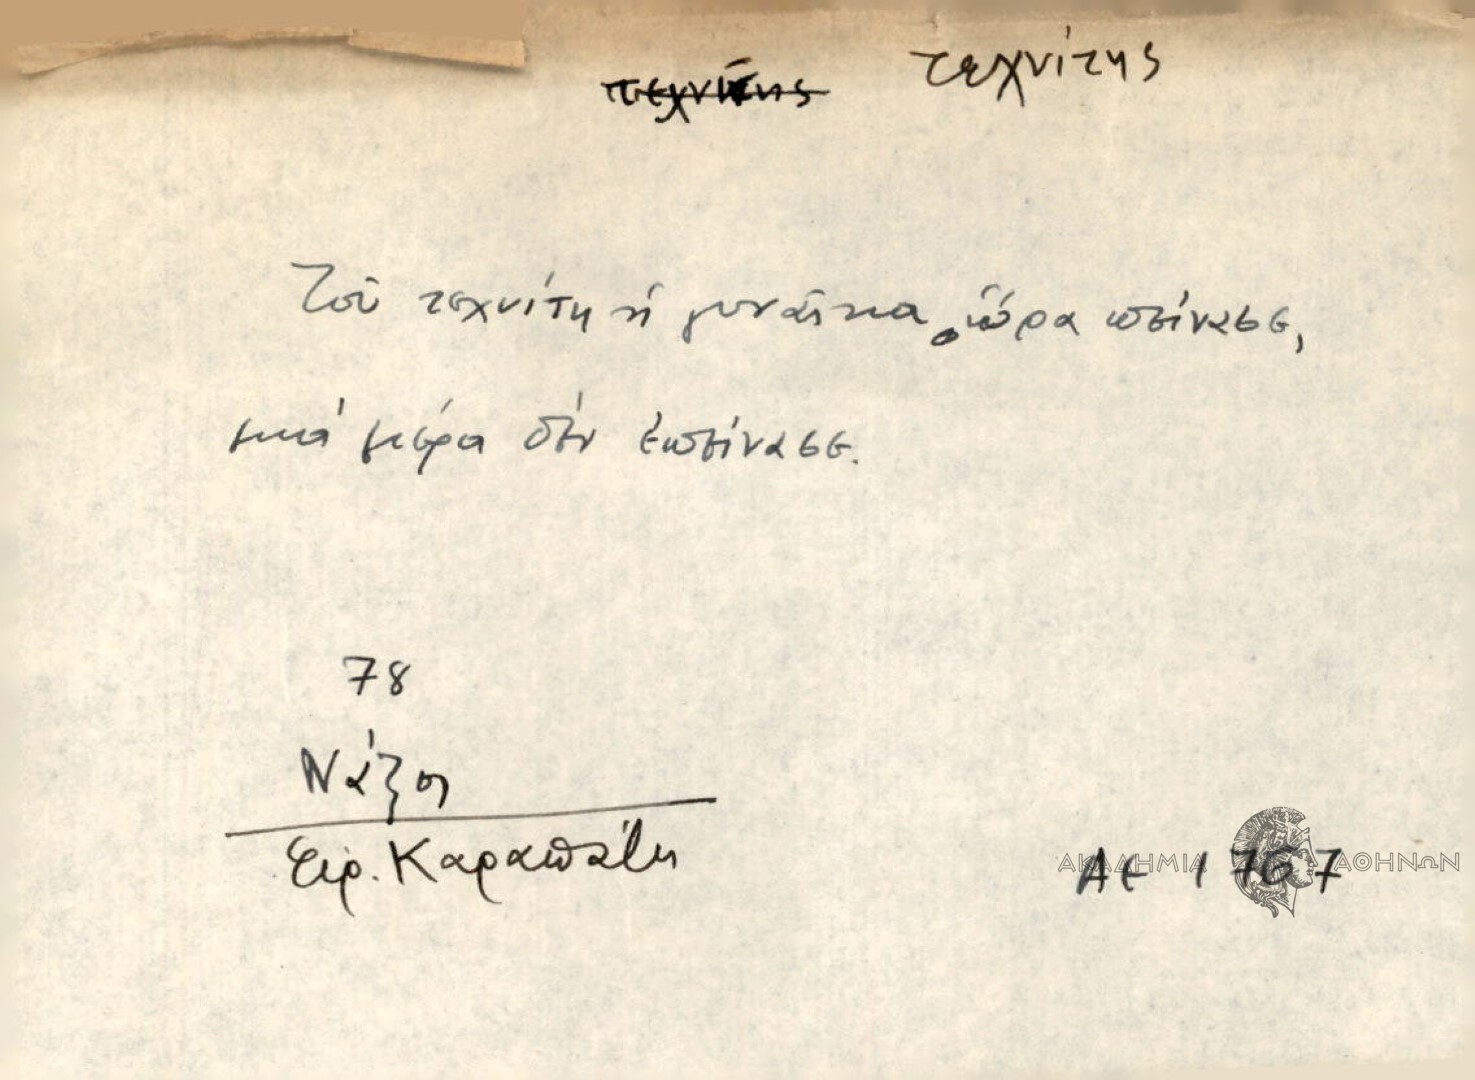 τεχνίτης τεχνίτης
Τοῦ τεχνίτη ἡ γυναῖκα ὥρα πείνασε,
μιά μέρα δέν ἐπείνασε.
78
Νάξοσ
Εἰρ. Καραπάτη
ΑΚΑΔΗΜΙΑ ΑΘΗΝΩΝ
ΑΕ 1767